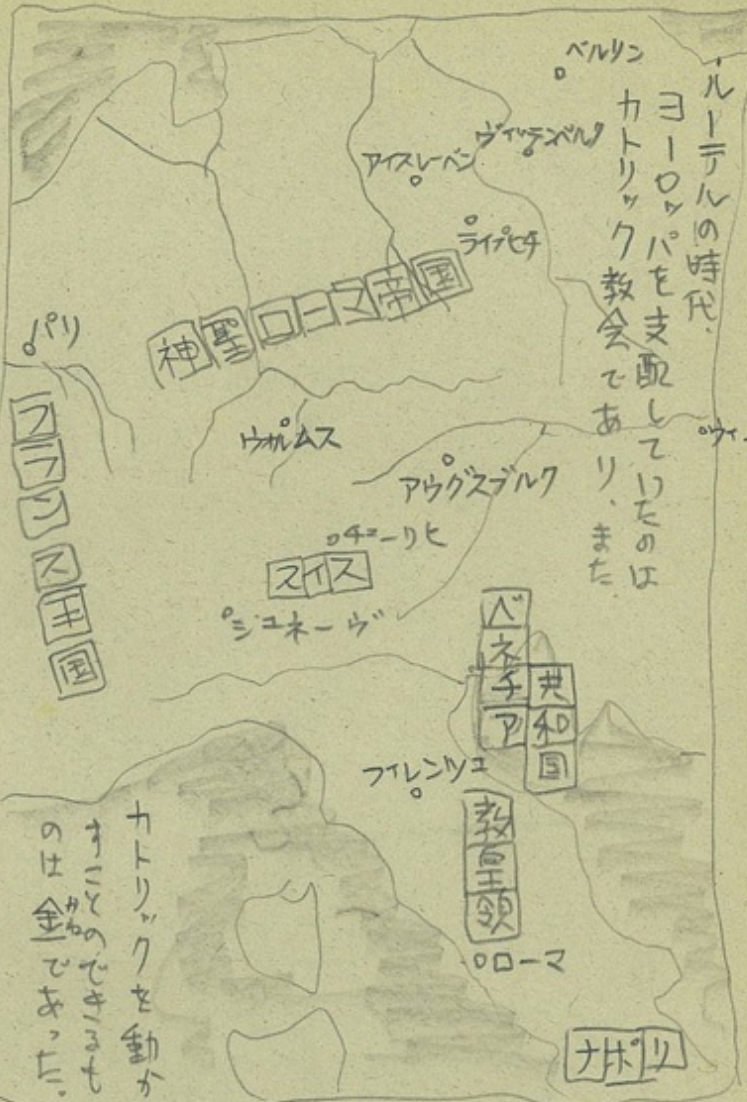 ルーテルの時代、
ヨーロッパを支配していたのは
カトリック教会であり、また
ベルリン
ヴィッテンベルク
アイスレーベン
ライプヒチ
神聖ローマ帝国
パリ
フランス王国
ウォルムス
アウグスブルク
ウィ
チューリヒ
スイス
ジュネーヴ
ベネチア
共和国
フィレンツェ
教皇領
ローマ
ナポリ
カトリックを動か
すことのできるも
のは金であった。
かね